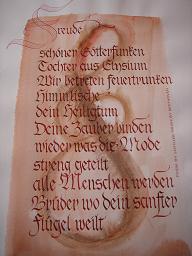 Freude
schöner Götterfunken
Tochter aus Elysium
Wir betreten feuertrunken
Himmlische
dein Heiligtum
Deine Zauber binden
wieder was die Mode
streng geteilt
alle Menschen werden
Brüder wo dein sanfter
Flügel weilt